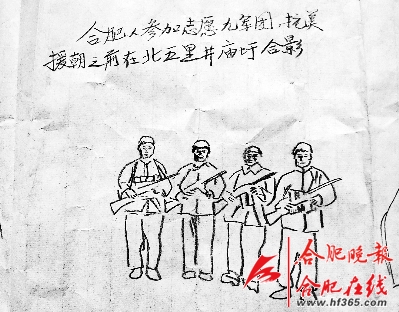 合肥人参加志愿九军团，抗美
援朝之前在北五里井庙圩合影
合肥晚报
合肥在线
www.hf365.com